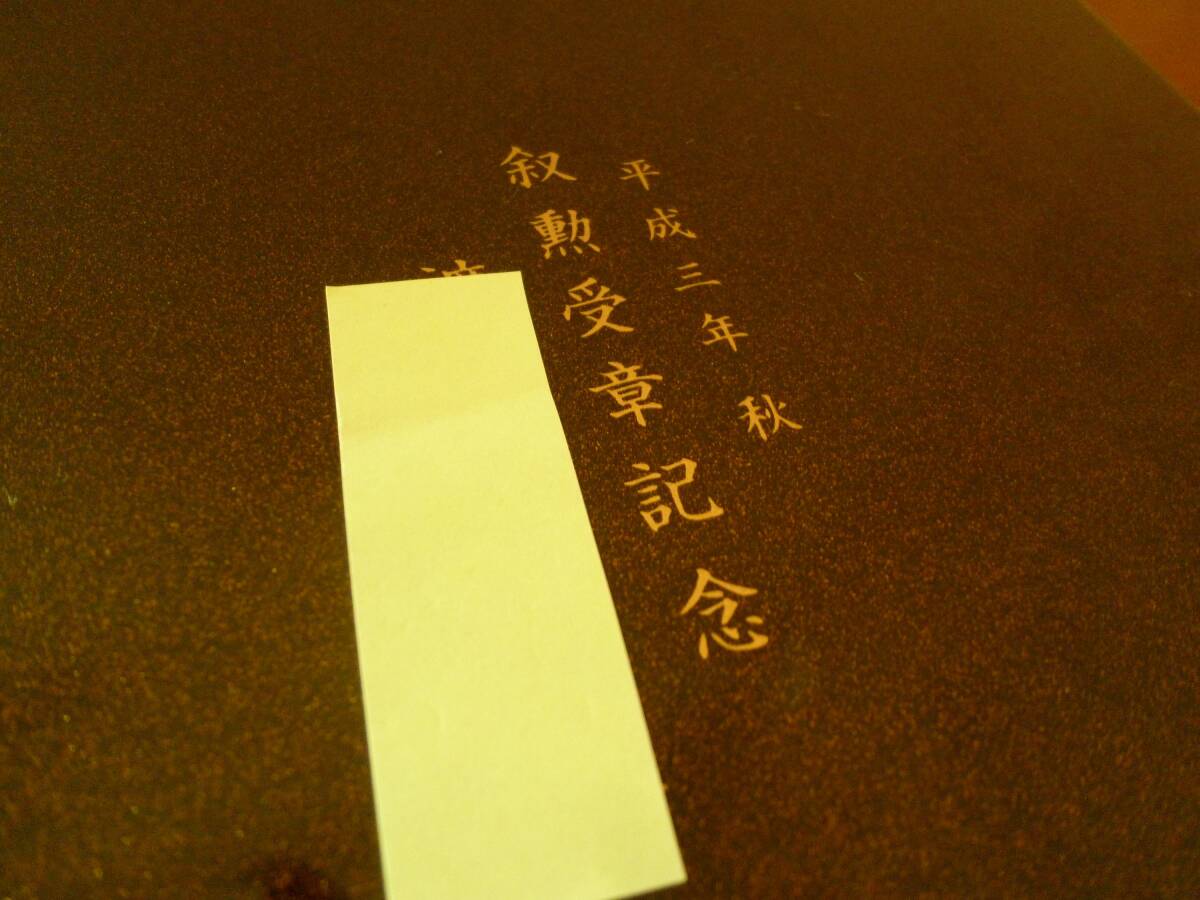 平成三年秋
叙勲受章記念